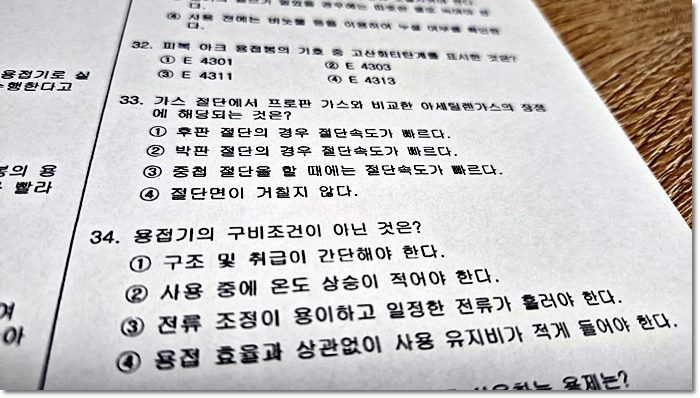 다.
④ 사용 전에는 비눗물 등을 이용하여 누설 여부를 확인한
다.
32. 피복 아크 용접봉의 기호 중 고산화티탄계를 표시한 것은?
① E 4301
② E 4303
③ E 4311
④ E 4313
33. 가스 절단에서 프로판 가스와 비교한 아세틸렌가스의 장점
에 해당되는 것은?
① 후판 절단의 경우 절단속도가 빠르다.
② 박판 절단의 경우 절단속도가 빠르다.
③ 중첩 절단을 할 때에는 절단속도가 빠르다.
④ 절단면이 거칠지 않다.
34. 용접기의 구비조건이 아닌 것은?
① 구조 및 취급이 간단해야 한다.
② 사용 중에 온도 상승이 적어야 한다.
③ 전류 조정이 용이하고 일정한 전류가 흘러야 한다.
④ 용접 효율과 상관없이 사용 유지비가 적게 들어야 한다.
용접기로 실
수행한다고
봉의 용
빨라
여
아